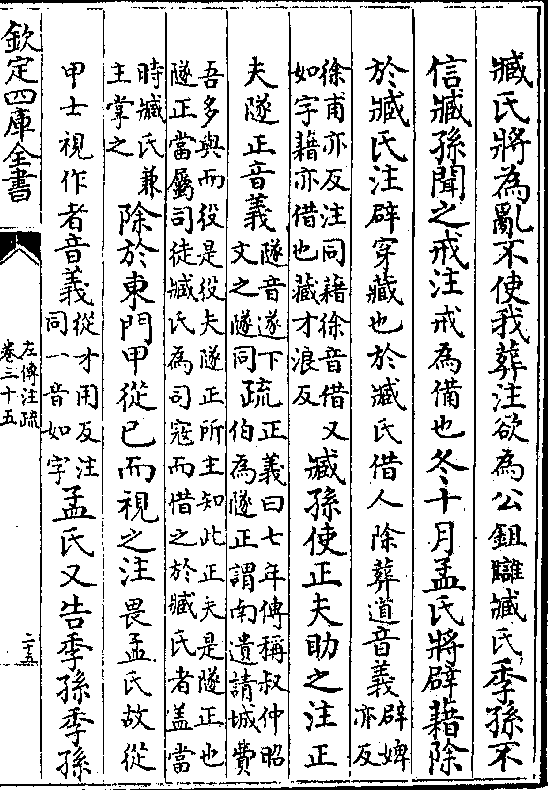 臧氏將為亂不使我葬注欲為公鉏讎臧氏季孫不
信臧孫聞之戒注戒為備也冬十月孟氏將辟藉除
於臧氏注辟穿藏也於臧氏借人除葬道音義辟婢亦反
徐甫亦反注同藉徐音借又如字藉亦借也藏才浪反臧孫使正夫助之注正
夫隧正音義隧音遂下文之隧同疏正義曰七年傳稱叔仲昭伯為隧正謂南遺請城費
吾多與而役是役夫隧正所主知此正夫是隧正也隧正當屬司徒臧氏為司寇而借之於臧氏者盖當
時臧氏兼主掌之除於東門甲從已而視之注畏孟氏故從
甲士視作者音義從才用反注同一音如字孟氏又告季孫季孫
欽定四庫全書
左傳注疏
卷三十五
二十五